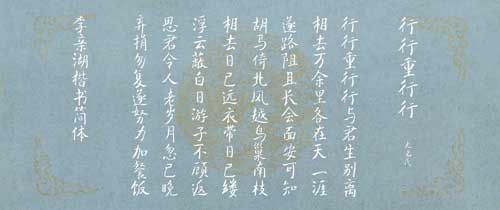 行行重行行
行行重行行与君生别离
相去万余里各在天一涯
道路阻且长会面安可知
胡马倚北风越鸟巢南枝
相去日已远衣带日已缓
浮云蔽白日游子不顾返
思君令人老岁月忽已晚
弃捐勿复道努力加餐饭
李湖楷书简体